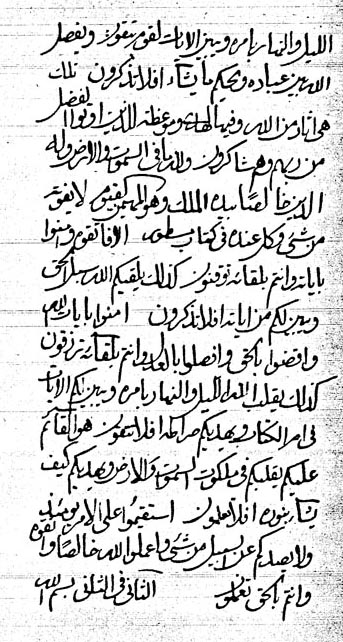 الليل والنهار بامره ويبين الايات لقوم يتقون ويفصل
الله بين عباده ويحكم ما يشاء افلا تذكرون تلك
هى آيات من الله وفيها الهدى وموعظة للذين اوتوا الفضل
من ربهم وهم شاكرون ولله ما فى السموات والارض وله
الدين خالصا بيده الملك وهو المهيمن القيوم لا يفوته
من شئ وكل عنده فى كتاب مسطور الا فاتقوه وامنوا
باياته وانتم بلقائه توقنون كذلك يلقيكم الله سبل الحق
ويبين لكم من اياته افلا تذكرون امنوا بايات الله
واقضوا بالحق وافصلوا بالعدل وانتم بلقائه ترزقون
كذلك يقلب الله الليل والنهار بامره ويبين لكم الايات
فى ام الكتاب ويهديكم صراطه افلا تتقون هو القائم
عليكم يقلبكم فى ملكوت السموات والارض ويهديكم كيف
يشاء بنوره افلا تعلمون استقيموا على الامر يومئذ
ولا يصدنكم عن السبيل من شئ واعملوا لله خالصا واتقوه
وانتم بالحق تعملون الثانى فى الثانى بسم الله